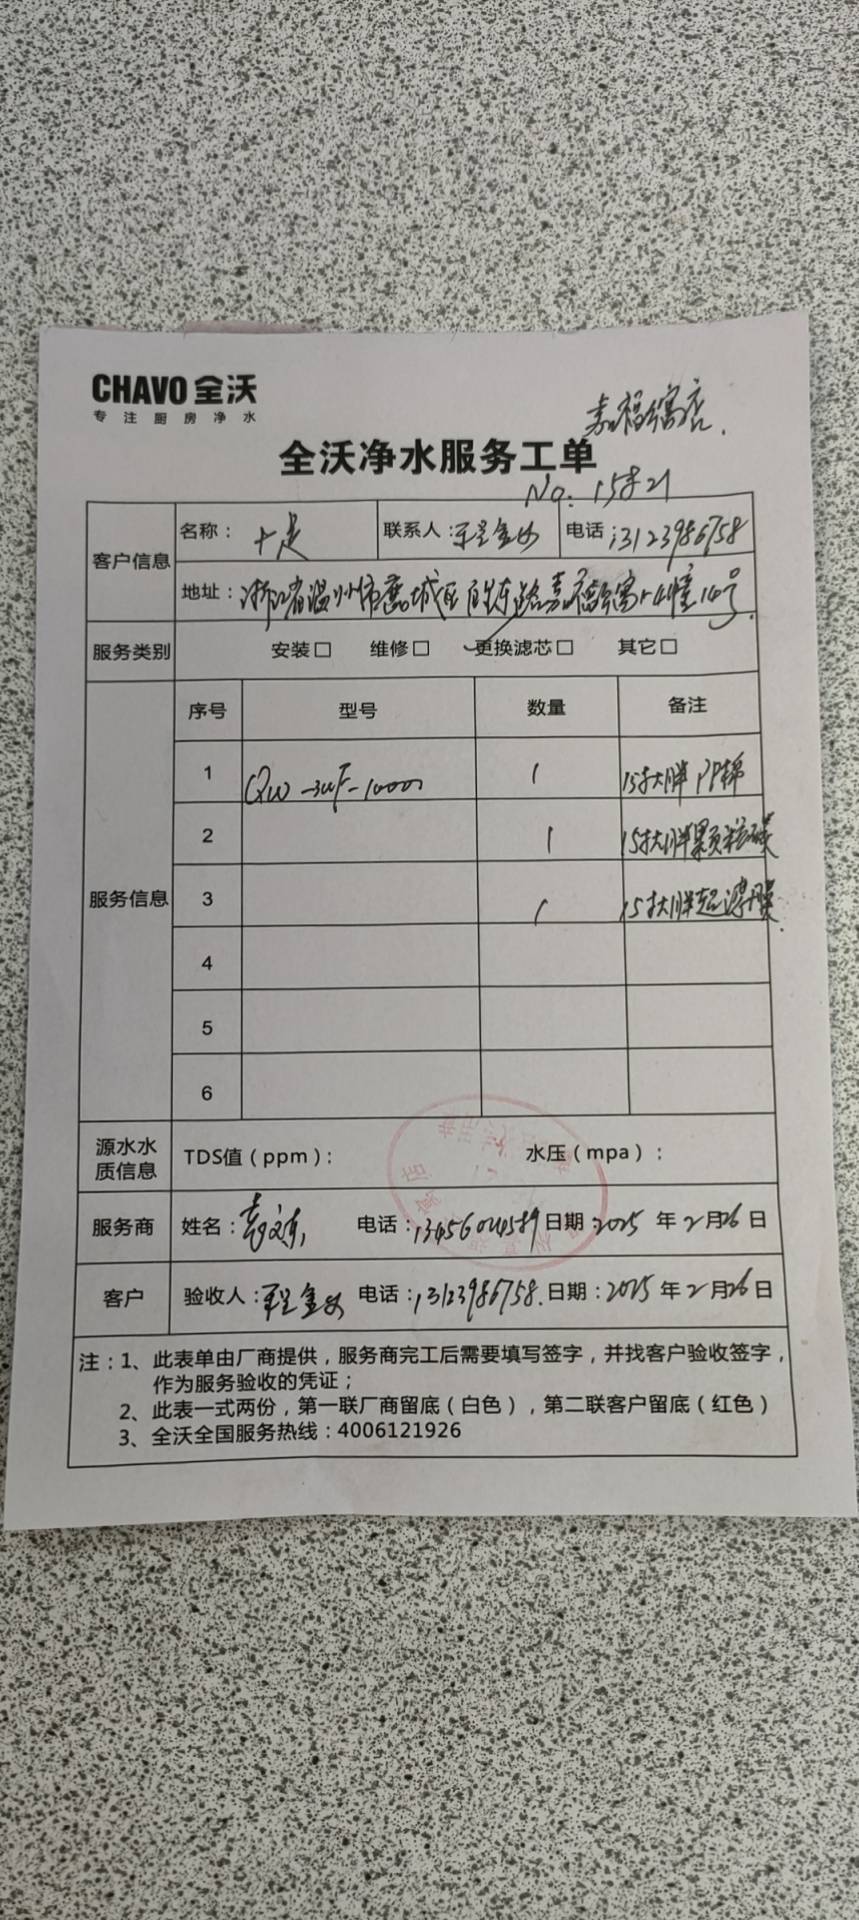 CHAVO 全沃
专注厨房净水
嘉福缤店.
全沃净水服务工单
No: 15821
客户信息 名称: 十足 联系人: 金 电话: 13123986758
地址: 浙江省温州市鹿城区 东路嘉福缤 幢 号
服务类别 安装□ 维修□ 更换滤芯□ 其它□
服务信息 序号 型号 数量 备注
1 QW-3UF-1000 1 15寸大胖PP棉
2 1 15寸大胖颗粒碳
3 1 15寸大胖超滤膜.
4
5
6
源水水质信息 TDS值(ppm): 水压(mpa):
服务商 姓名: 电话: 13456024589 日期: 2025 年 2 月 26 日
客户 验收人: 金 电话: 13123986758. 日期: 2025 年 2 月 26 日
注:1、此表单由厂商提供,服务商完工后需要填写签字,并找客户验收签字,
作为服务验收的凭证;
2、此表一式两份,第一联厂商留底(白色),第二联客户留底(红色)
3、全沃全国服务热线:4006121926